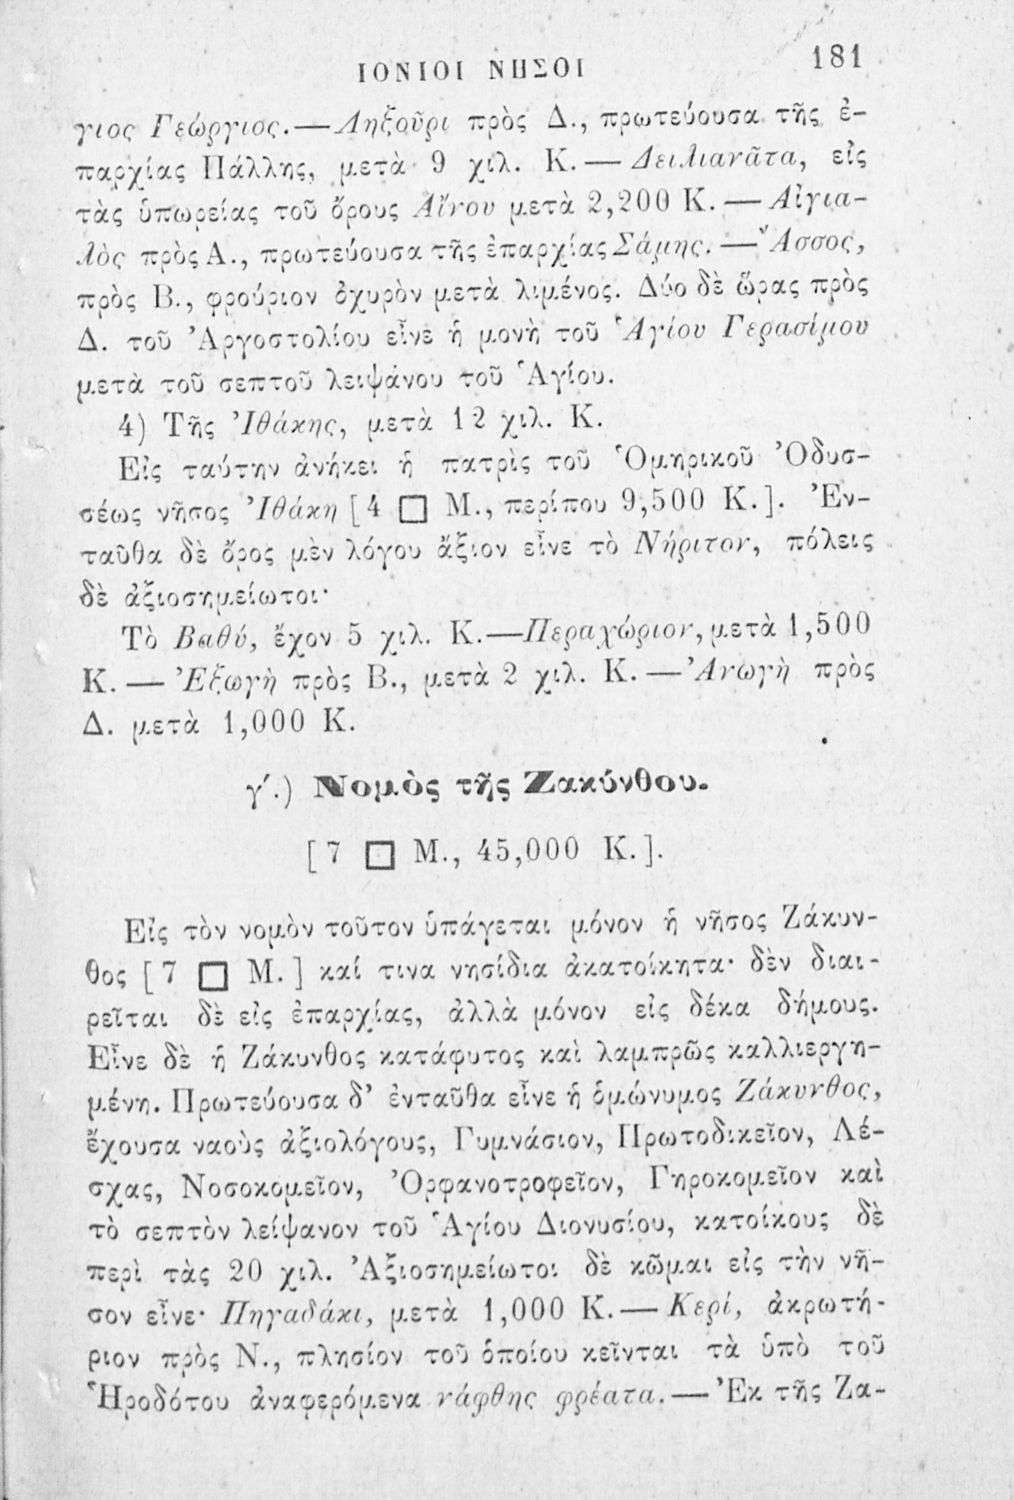 ΙΟΝΙΟΙ ΝΗΣΟΙ 181
γιος Γεώργιος.—Ληξοῦρι πρὸς Δ., πρωτεύουσα τῆς ἐ-
παρχίας Πάλλης, μετὰ 9 χιλ. Κ. — Δειλιανᾶτα, εἰς
τὰς ὑπωρείας τοῦ ὄρους Αἴνου μετὰ 2,200 Κ. — Αἰγια-
λὸς πρὸς Α., πρωτεύουσα τῆς ἐπαρχίας Σάμης. — Ἄσσος,
πρὸς Β., φρούριον ὀχυρὸν μετὰ λιμένος. Δύο δὲ ὥρας πρὸς
Δ. τοῦ Ἀργοστολίου εἶνε ἡ μονὴ τοῦ Ἁγίου Γερασίμου
μετὰ τοῦ σεπτοῦ λειψάνου τοῦ Ἁγίου.
4) Τῆς Ἰθάκης, μετὰ 12 χιλ. Κ.
Εἰς ταύτην ἀνήκει ἡ πατρὶς τοῦ Ὁμηρικοῦ Ὀδυσ-
σέως νῆσος Ἰθάκη [4 □ Μ., περίπου 9,500 Κ.]. Ἐν-
ταῦθα δὲ ὄρος μὲν λόγου ἄξιον εἶνε τὸ Νήριτον, πόλεις
δὲ ἀξιοσημείωτοι·
Τὸ Βαθύ, ἔχον 5 χιλ. Κ.—Περαχώριον, μετὰ 1,500
Κ. — Ἐξωγὴ πρὸς Β., μετὰ 2 χιλ. Κ. — Ἀνωγὴ πρὸς
Δ. μετὰ 1,000 Κ.
γ΄.) Νομὸς τῆς Ζακύνθου.
[7 □ Μ., 45,000 Κ.].
Εἰς τὸν νομὸν τοῦτον ὑπάγεται μόνον ἡ νῆσος Ζάκυν-
θος [7 □ Μ.] καί τινα νησίδια ἀκατοίκητα· δὲν διαι-
ρεῖται δὲ εἰς ἐπαρχίας, ἀλλὰ μόνον εἰς δέκα δήμους.
Εἶνε δὲ ἡ Ζάκυνθος κατάφυτος καὶ λαμπρῶς καλλιεργη-
μένη. Πρωτεύουσα δ’ ἐνταῦθα εἶνε ἡ ὁμώνυμος Ζάκυνθος,
ἔχουσα ναοὺς ἀξιολόγους, Γυμνάσιον, Πρωτοδικεῖον, Λέ-
σχας, Νοσοκομεῖον, Ὀρφανοτροφεῖον, Γηροκομεῖον καὶ
τὸ σεπτὸν λείψανον τοῦ Ἁγίου Διονυσίου, κατοίκους δὲ
περὶ τὰς 20 χιλ. Ἀξιοσημείωτοι δὲ κῶμαι εἰς τὴν νῆ-
σον εἶνε· Πηγαδάκι, μετὰ 1,000 Κ.— Κερί, ἀκρωτή-
ριον πρὸς Ν., πλησίον τοῦ ὁποίου κεῖνται τὰ ὑπὸ τοῦ
Ἡροδότου ἀναφερόμενα νάφθης φρέατα. — Ἐκ τῆς Ζα-